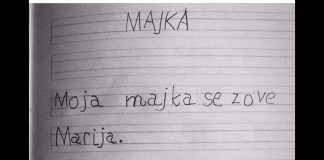 MAJKA
Moja majka se zove
Marija.